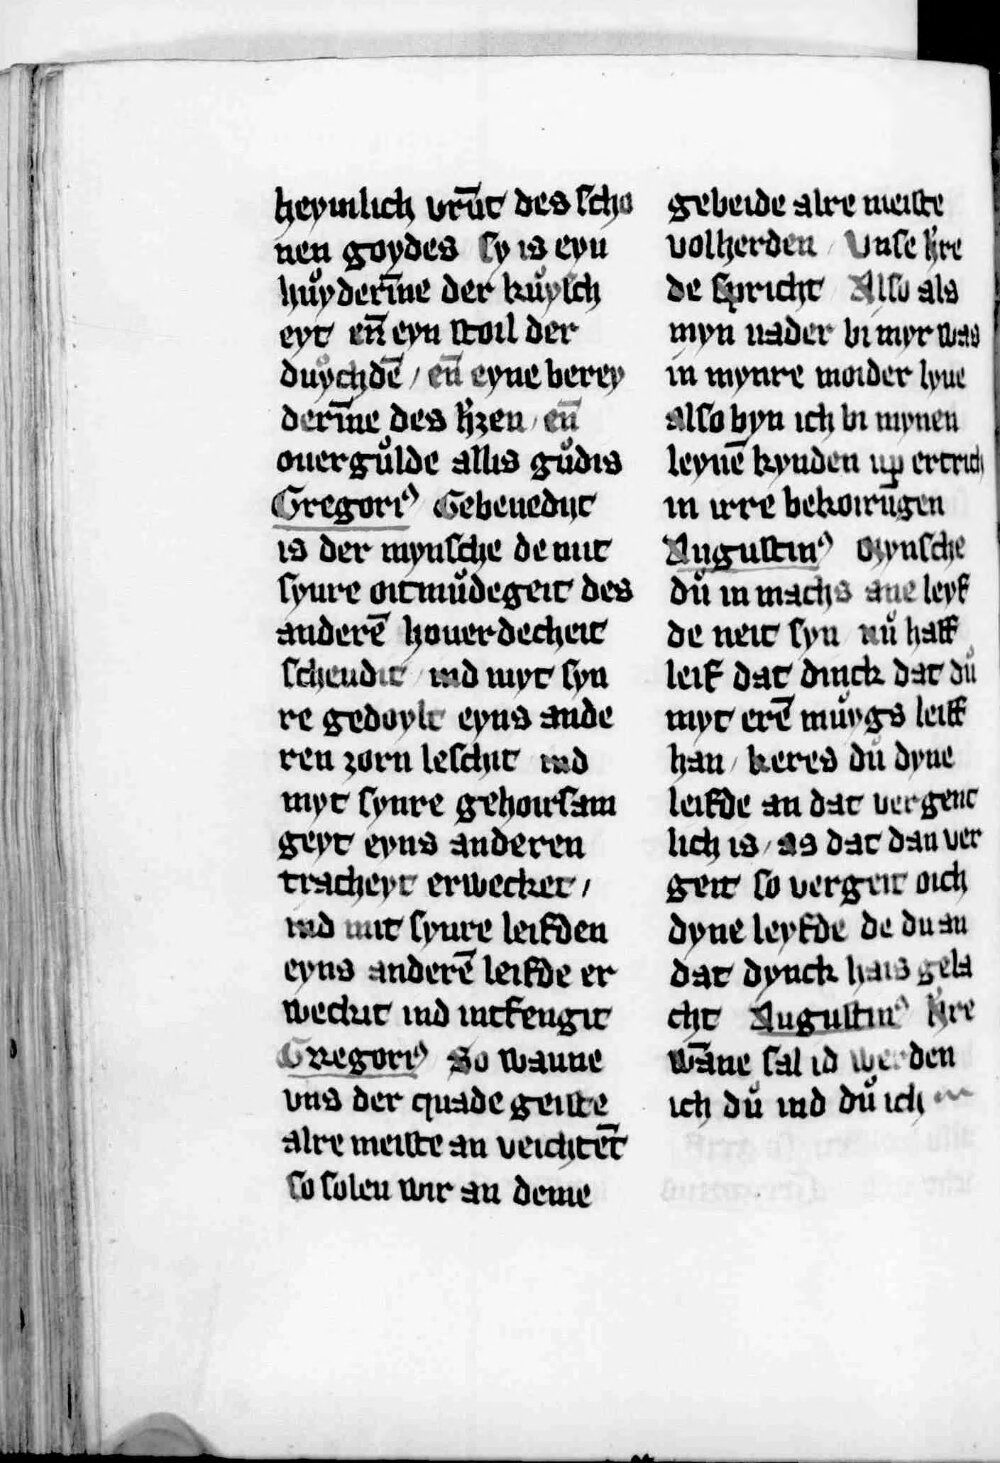 heymlich vru̅t des scho
nen goydes sy is eyn
hůyderi̅ne der kůysch
eyt en̅ eyn stoil der
důychde̅ / en̅ eyne berey
deri̅ne des h̕zen / en̅
ouergůlde allis gůdis
Gregori⁹ Gebenedijt
is der mynsche de mit
synre oitmůdegeit des
andere̅ houerdecheit
schendit / ind myt syn
re gedoylt eyns ande
ren zorn leschit ind
myt synre gehoirsam
geyt eyns anderen
tracheyt erwecket /
ind mit synre leifden
eyns andere̅ leifde er
weckit ind intfengit
Gregori⁹ So wanne
vns der quade geiste
alre meiste an veichte̅t
so solen wir an deme
gebeide alre meiste
volherden / Unse h̕re
de spricht Also als
myn uader bi myr was
in mynre moider lyue
also byn ich bi mynen
leyue̅ kynden up ertrich
in irre bekoiru̅gen
Augustin⁹ O mynsche
dů in machs ane leyf
de neit syn nů haff
leif dat dinck dat dů
myt ere̅ můygs leiff
han / keres dů dyne
leifde an dat vergenc
lich is / as dat dan ver
geit so vergeit oich
dyne leyfde de du an
dat dynck hais gela
cht Augustin⁹ h̕re
wa̅ne sal id werden
ich dů ind dů ich